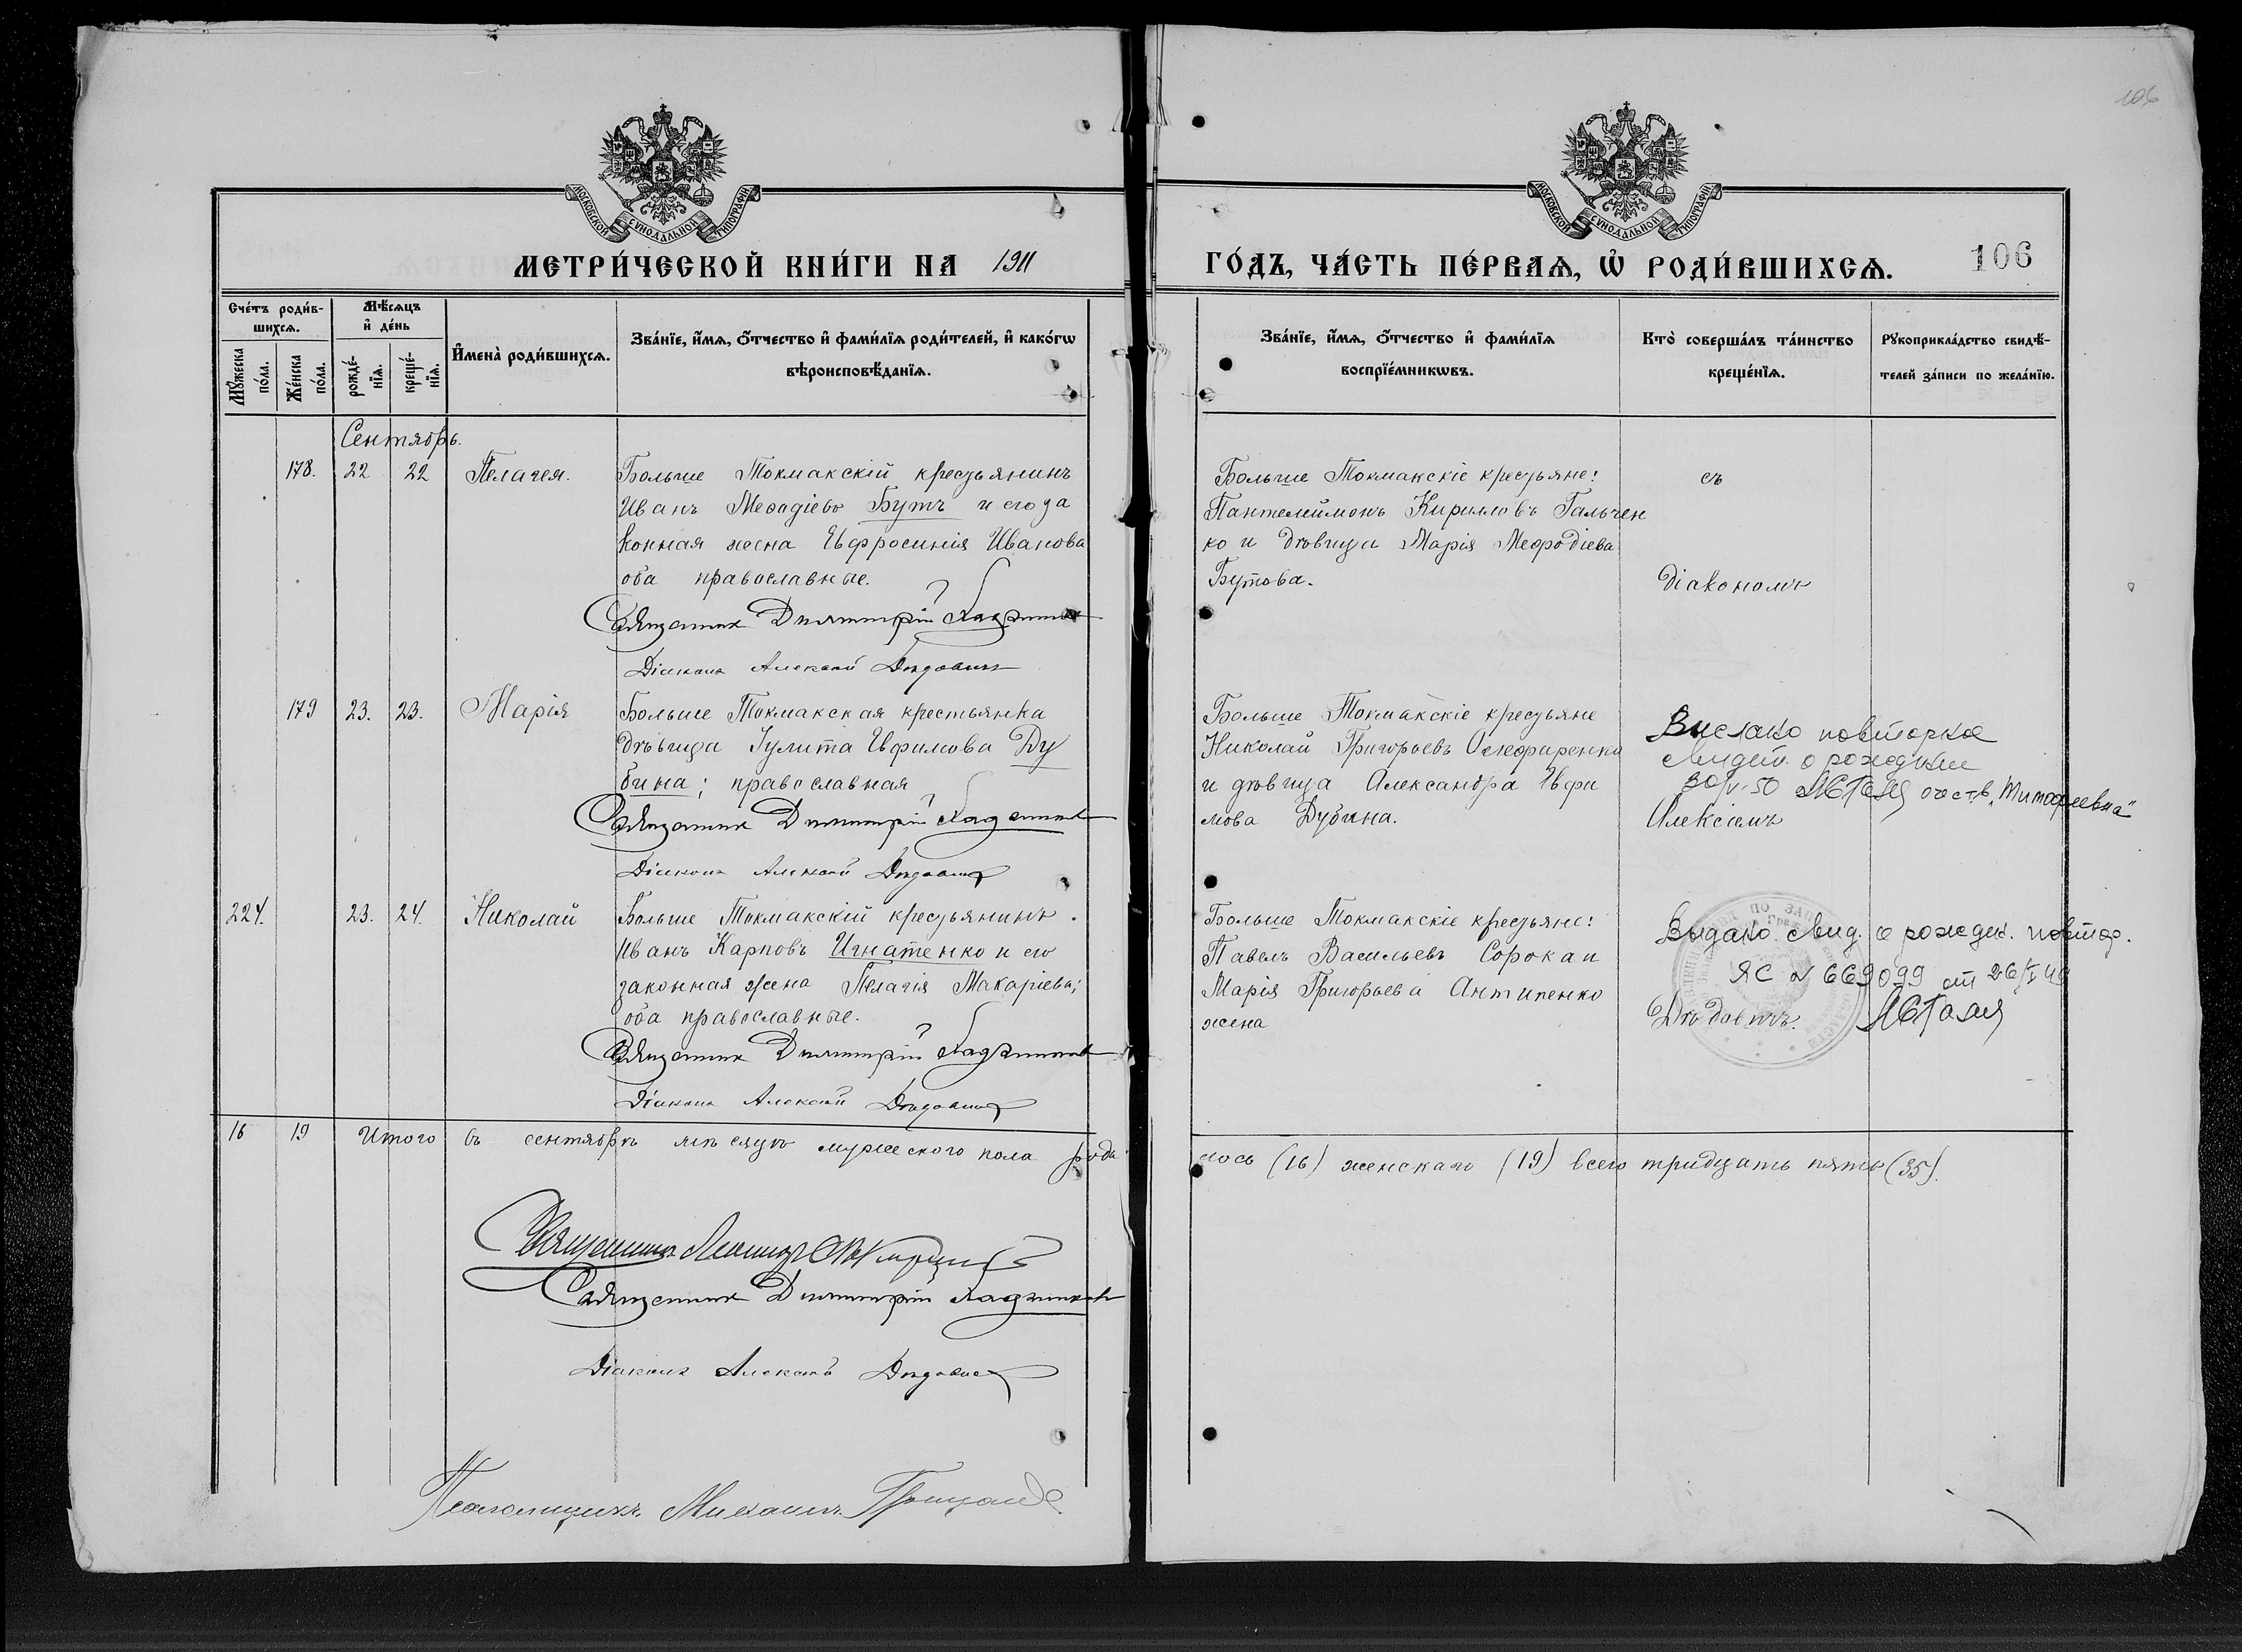 106
МОСКОВСКОЙ СУНОДАЛЬНОЙ ТИПОГРАФІИ
МОСКОВСКОЙ СУНОДАЛЬНОЙ ТИПОГРАФІИ
МЕТРИ́ЧЕСКОЙ КНИ́ГИ НА 1911
ГО́ДЪ, ЧА́СТЬ ПЕ́РВАѦ, Ѡ҆ РОДИ́ВШИХСѦ. 106
Сче́тъ роди́в-
шихсѧ.
Мꙋ́жеска
по́ла.
Же́нска
по́ла.
Мѣ́сѧцъ
и҆ де́нь
рожде́-
нїѧ.
креще́-
нїѧ.
И҆мена̀ роди́вшихсѧ.
Зва́нїе, и҆́мѧ, ѻ҆́тчество и҆ фами́лїѧ роди́телей, и҆ како́гѡ
вѣроисповѣ́данїѧ.
Зва́нїе, и҆́мѧ, ѻ҆́тчество и҆ фами́лїѧ
воспрїе́мникѡвъ.
Кто̀ соверша́лъ та́инство
креще́нїѧ.
Рꙋкоприкла́дство свидѣ́-
телей за́писи по жела́нїю.
Сентябрь.
178. 22 22 Пелагея.
Больше Токмакскій крестьянинъ
Иванъ Меѳодіевъ Бутъ и его за
конная жена Евфросинія Иванова
оба православные.
Священникъ Димитрій
Діаконъ Алексѣй Дѣдовичъ
Больше Токмакскіе крестьяне:
Пантелиймонъ Кирилловъ Гальчен
ко и дѣвица Марія Меѳодіева
Бутова.
съ
діакономъ
179 23. 23. Марія
Больше Токмакская крестьянка
дѣвица Іулита Ефимова Ду
бина; православная
Священникъ Димитрій
Діаконъ Алексѣй Дѣдовичъ
Больше Токмакскіе крестьяне
Николай Григорьевъ
и дѣвица Александра Ефи
мова Дубина.
Выслано повторное
свидет. о рождении
30/V-50 отчеств. "Тимофеевна"
Алексіемъ
224. 23. 24. Николай
Больше Токмакскій крестьянинъ
Иванъ Карповъ Игнатенко и его
законная жена Пелагія Макаріева;
оба православные.
Священникъ Димитрій
Діаконъ Алексѣй Дѣдовичъ
Больше Токмакскіе крестьяне:
Павелъ Васильевъ Сорока и
Марія Григорьева Антипенко
жена
Выдано свид. о рожден. повтор.
ЯС № 669099 от 26/I
Дѣдовичъ.
16 19 Итого въ сентябрѣ мѣсяцѣ мужеского пола роди
лось (16) женскаго (19) всего тридцать пять (35).
Священникъ
Священникъ Димитрій
Діаконъ Алексѣй Дѣдовичъ
Псаломщикъ Михаилъ